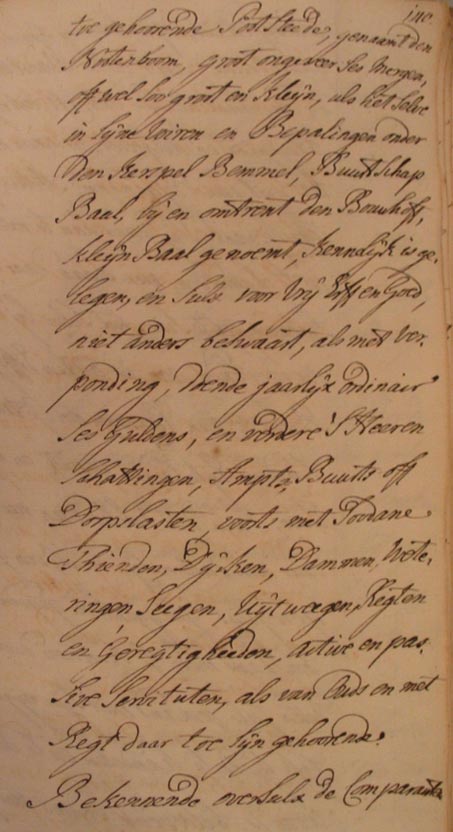 110.
toe gehoorende Poststeede, genaamt den
Notenboom, groot ongeveer ses mergen,
off wel soo groot en kleijn, als het selve
in sijne Voiren en Bepalingen onder
den Kerspel Bemmel, Buurtschap
Baal, bij en omtrent den Bouwhoff,
kleijn Baal genoemt, kennelijk is ge-
legen, en sulx voor Vrij Erff en Goed,
niet anders beswaart, als met Ver-
ponding, doende jaarlijx ordinair
Ses Guldens, en verdere 'S Heeren
Schattingen, Ampts, Buurts off
Dorpslasten, voorts met Sodane
Thienden, Dijken, Dammen, Wete-
ringen Seegen, Uijtweegen, Regten
en Geregtigheeden, active en pas-
sive Servituten, als van Ouds en met
Regt daar toe sijn gehoorende.
Bekennende oversulx de Comparanten